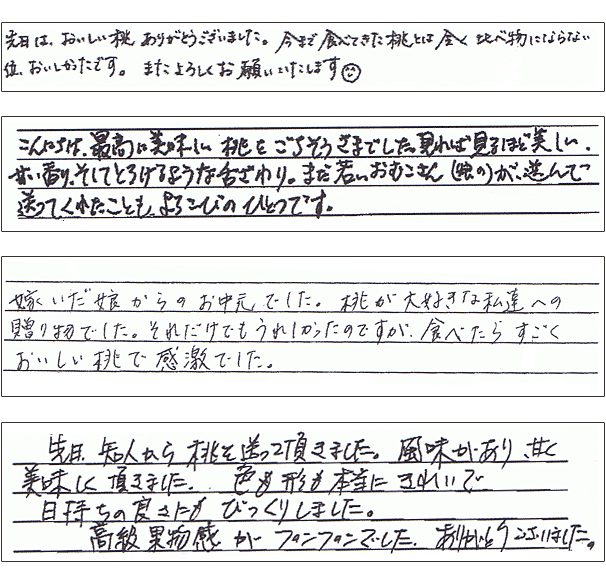 先日は、おいしい桃、ありがとうございました。今まで食べてきた桃とは全く比べ物にならない
位、おいしかったです。またよろしくお願いいたします
こんにちは、最高に美味しい桃をごちそうさまでした。見れば見るほど美しい、
甘い香り、そしてとろけるような舌ざわり。まだ若いおむこさん(娘の)が、選んで
送ってくれたことも、よろこびのひとつです。
嫁いだ娘からのお中元でした。桃が大好きな私達への
贈り物でした。それだけでもうれしかったのですが、食べたらすごく
おいしい桃で感激でした。
先日、知人から桃を送って頂きました。風味があり、甘く
美味しく頂きました。色も形も本当にきれいで
日持ちの良さにもびっくりしました。
高級果物感がプンプンでした。ありがとうございました。